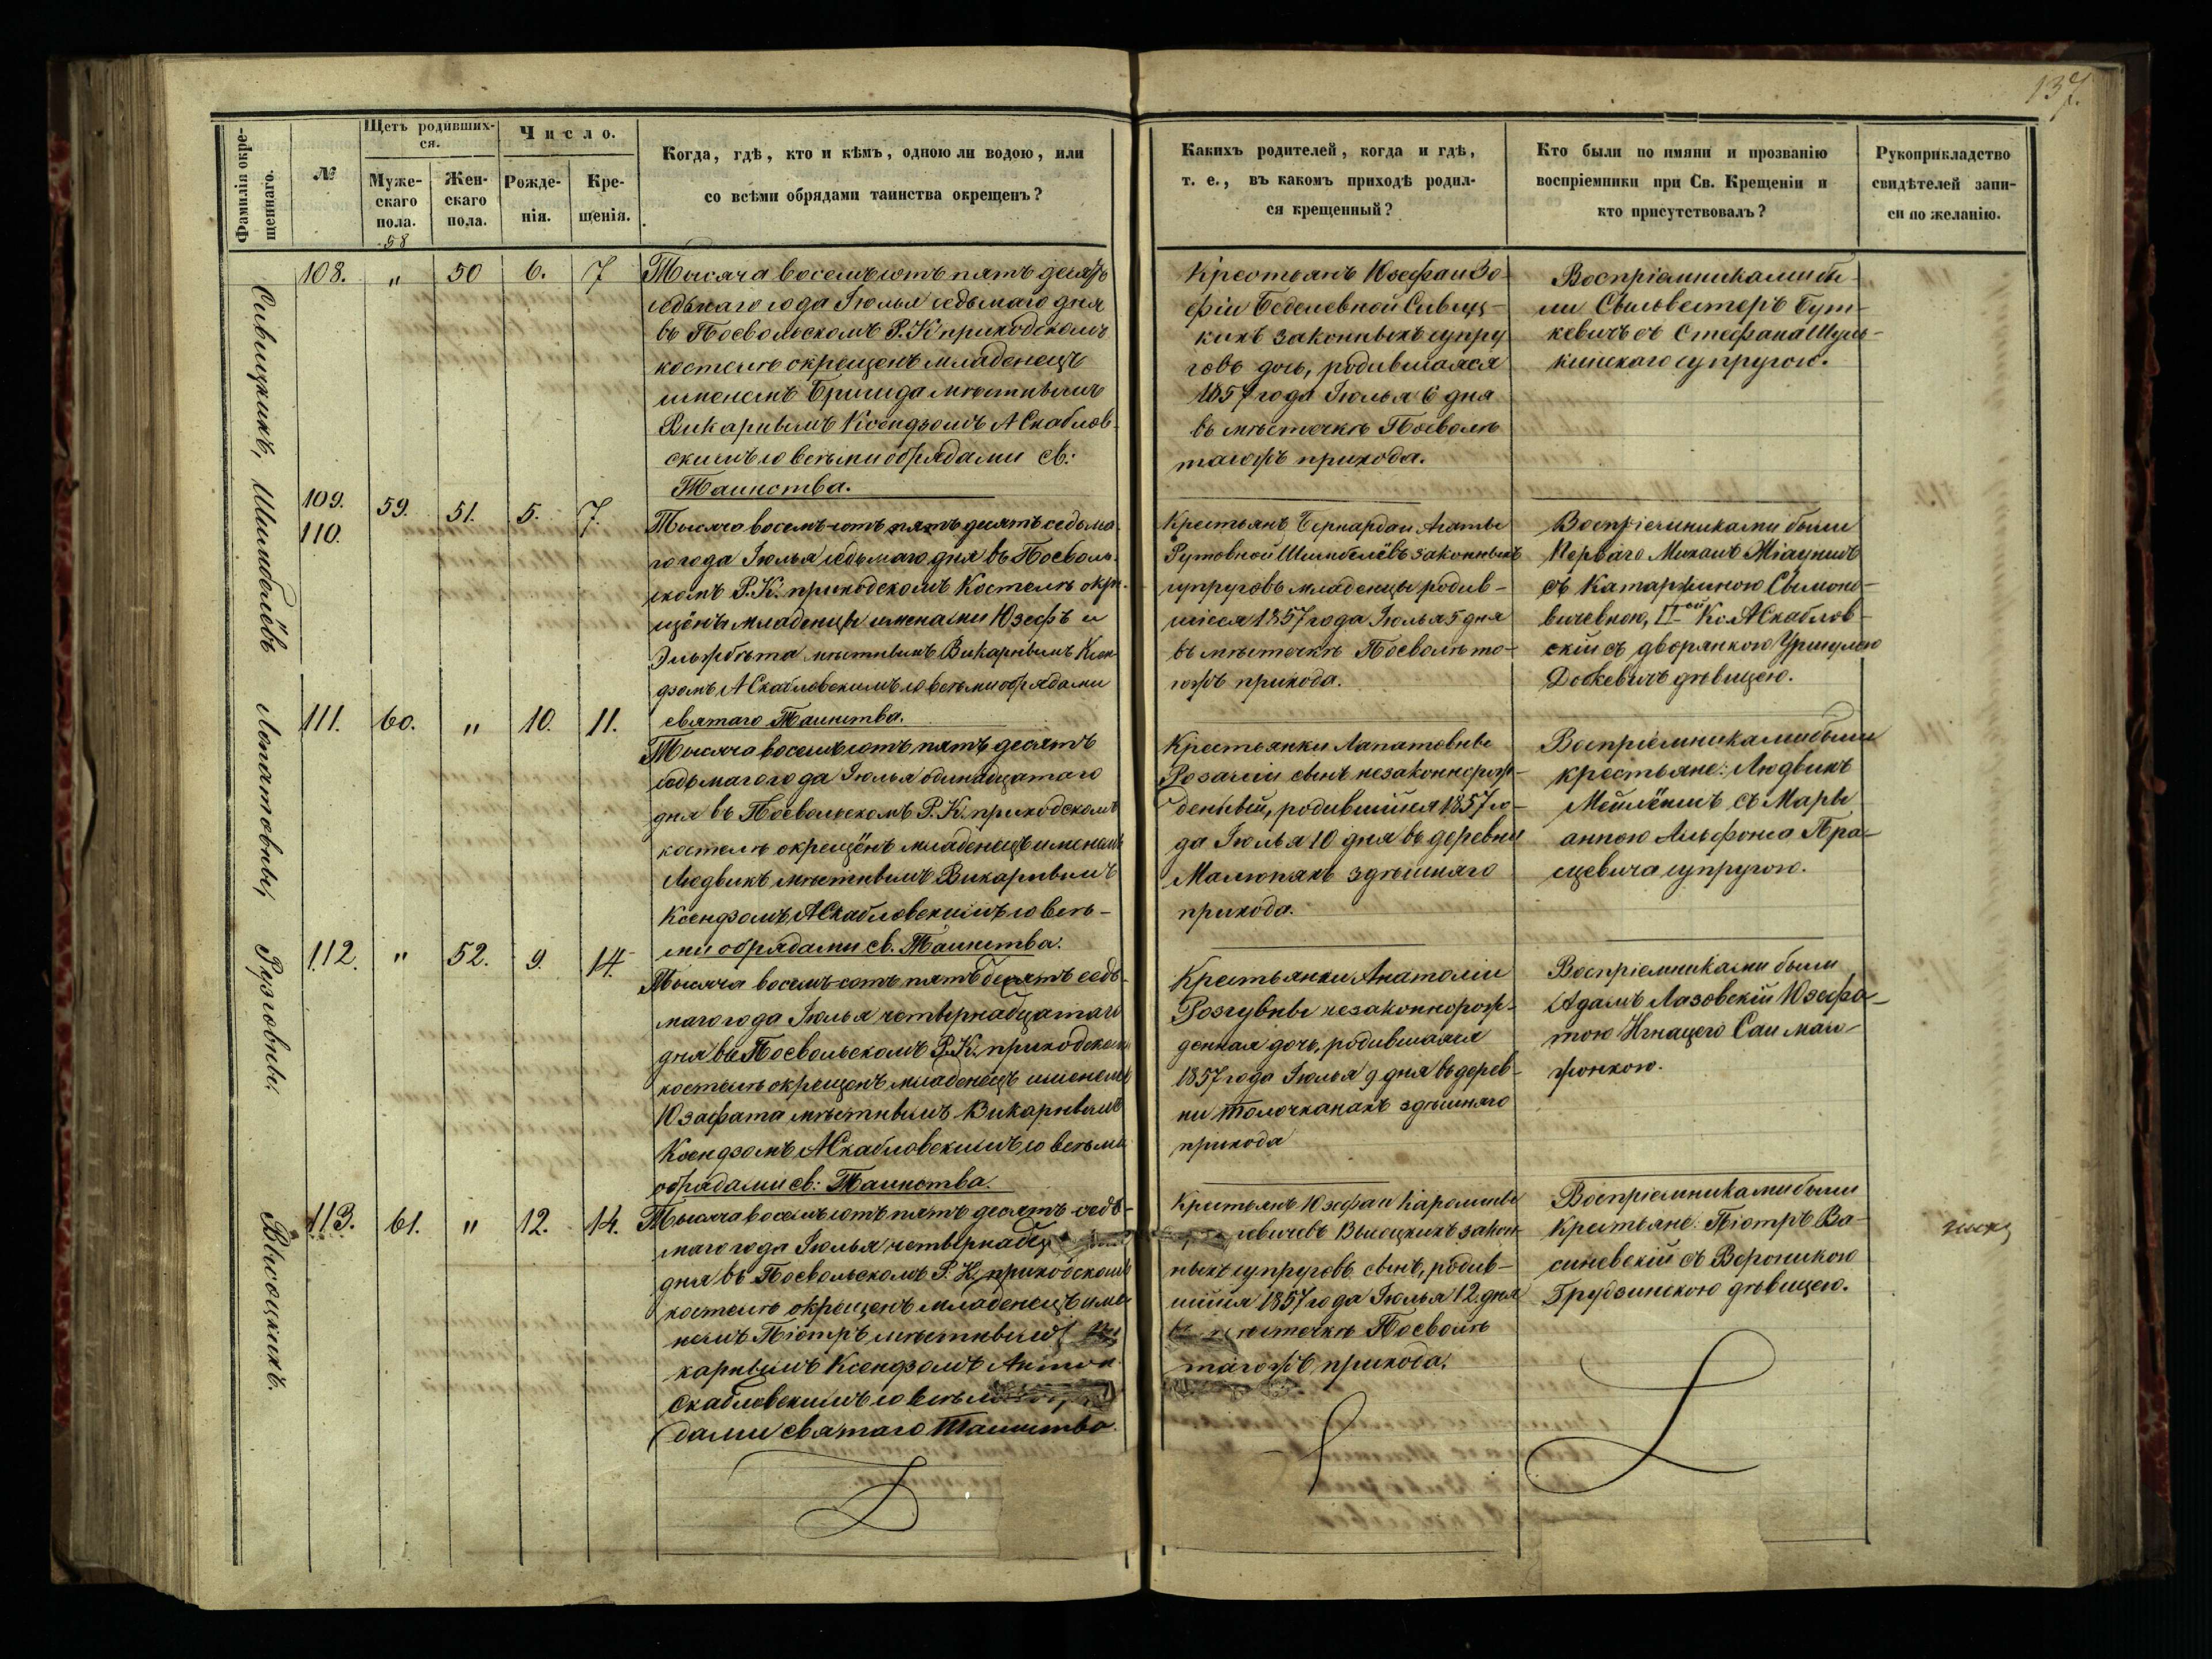 137.
Фамилія окре-
щеннаго.
№
Щетъ родивших-
ся.
Муже-
скаго
пола.
58
Жен-
скаго
пола.
Число.
Рожде-
нія.
Кре-
щенія.
Когда, гдѣ, кто и кѣмъ, одною ли водою, или
со всѣми обрядами таинства окрещенъ?
Какихъ родителей, когда и гдѣ,
т. е., въ какомъ приходѣ родил-
ся крещенный?
Кто были по имяни и прозванію
воспріемники при Св. Крещеніи и
кто присутствовалъ?
Рукоприкладство
свидѣтелей запи-
си по желанію.
Сивицкихъ,
108. " 50 6. 7
Тысяча восемъ сотъ пятъ десятъ
седьмаго года Іюлья седьмаго дня
въ Посвольскомъ Р. К приходскомъ
костелѣ окрещенъ младенецъ
именемъ Бригида мѣстнымъ
Викарнымъ Ксендзомъ А Скаблов-
скимъ со всѣми обрядами св:
Таинства.
Крестьянъ Юзефа и Зо-
фіи Беделевной Сивиц-
кихъ законныхъ супру
говъ дочь, родившаяся
1857 года Іюлья 6 дня
въ мѣстечкѣ Посволѣ
тагожъ прихода.
Воспріемниками бы-
ли Сыльвестеръ Бут-
кевичъ съ Стефана Шуль-
кинскаго супругою.
Шимбелёвъ
109.
110.
59. 51. 5. 7.
Тысяча восемъ-сотъ пятъ десятъ седьма
го года Іюлья седьмаго дня въ Посволь-
скомъ Р. К. приходскомъ Костелѣ окре-
щёнъ младенцы именами Юзефъ и
Эльжбѣта мѣстнымъ Викарнымъ Ксен-
дзомъ А Скабловскимъ со всѣми обрядами
святаго Таинства.
Крестьянъ Бернарда и Агаты
Рутовной Шимбелёвъ законныхъ
супруговъ младенцы родив-
шіеся 1857 года Іюлья 5 дня
въ мѣстечкѣ Посволѣ то-
гожъ прихода.
Воспріемниками были
Перваго Михалъ
съ Катаржиною Сымоно-
вичевною, II-ой Кс. А Скаблов-
скій съ дворянкою Уршулею
Доскевичъ дѣвицею.
Лопатовны,
111. 60. " 10. 11.
Тысяча восемъ сотъ пятъ десятъ
седьмаго года Іюлья одинадцатаго
дня въ Посвольскомъ Р. К. приходскомъ
костелѣ окрещёнъ младенецъ именемъ
Людвикъ мѣстнымъ Викарнымъ
Ксендзомъ А Скабловскимъ со всѣ-
ми обрядами св. Таинства.
Крестьянки Лапатовны
Розаліи сынъ незаконнорож-
денный, родившійся 1857 го-
да Іюлья 10 дня въ деревни
Малюнахъ здѣшняго
прихода.
Воспріемниками были
крестьяне: Людвикъ
съ Марь
анною Альфонса Пра-
сцевича супругою.
Рузговны.
112. " 52. 9. 14.
Тысяча восемъ-сотъ пятъ десятъ седь-
маго года Іюлья четырнадцатаго
дня въ Посвольскомъ Р. К. приходскомъ
костелѣ окрещенъ младенецъ именемъ
Юзафата мѣстнымъ Викарнымъ
Ксендзомъ А Скабловскимъ со всѣми
обрядами св: Таинства.
Крестьянки Анатоліи
Розгувны незаконнорож-
денная дочь, родившаяся
1857 года Іюлья 9 дня въ дерев-
ни Толочканахъ здѣшняго
прихода
Воспріемниками были
Адамъ Лазовскій Юзефа-
тою Игнацего
жонкою.
Высоцкихъ.
113. 61. " 12. 14.
Тысяча восемъ сотъ пятъ десятъ седь-
маго года Іюлья четырнадц
дня въ Посвольскомъ Р. К. приходскомъ
костелѣ окрещенъ младенецъ име-
немъ Піотръ мѣстнымъ Ви
карнымъ Ксендзомъ Антон
Скабловскимъ со всѣми
дами святаго Таинства.
Крестьянъ Юзефа и Каролины
левичевъ Высоцкихъ закон-
ныхъ супруговъ сынъ, родив-
шійся 1857 года Іюлья 12 дня
мѣстечкѣ Посволѣ
тагожъ прихода.
Воспріемниками были
Крестьяне: Піотръ Ва-
синевскій съ Вероникою
Грудзинскою дѣвицею.